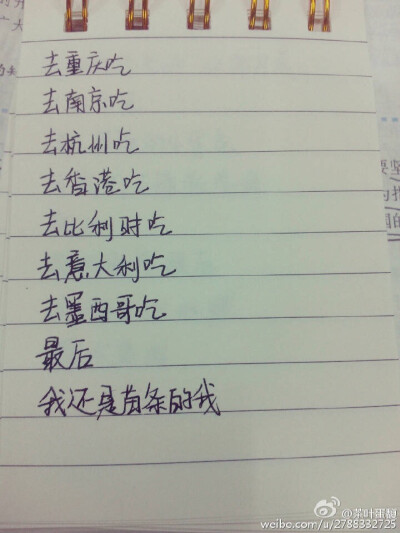 去重庆吃
去南京吃
去杭州吃
去香港吃
去比利时吃
去意大利吃
去墨西哥吃
最后
我还是苗条的我
@茶叶蛋靓
weibo.com/u/2788332725